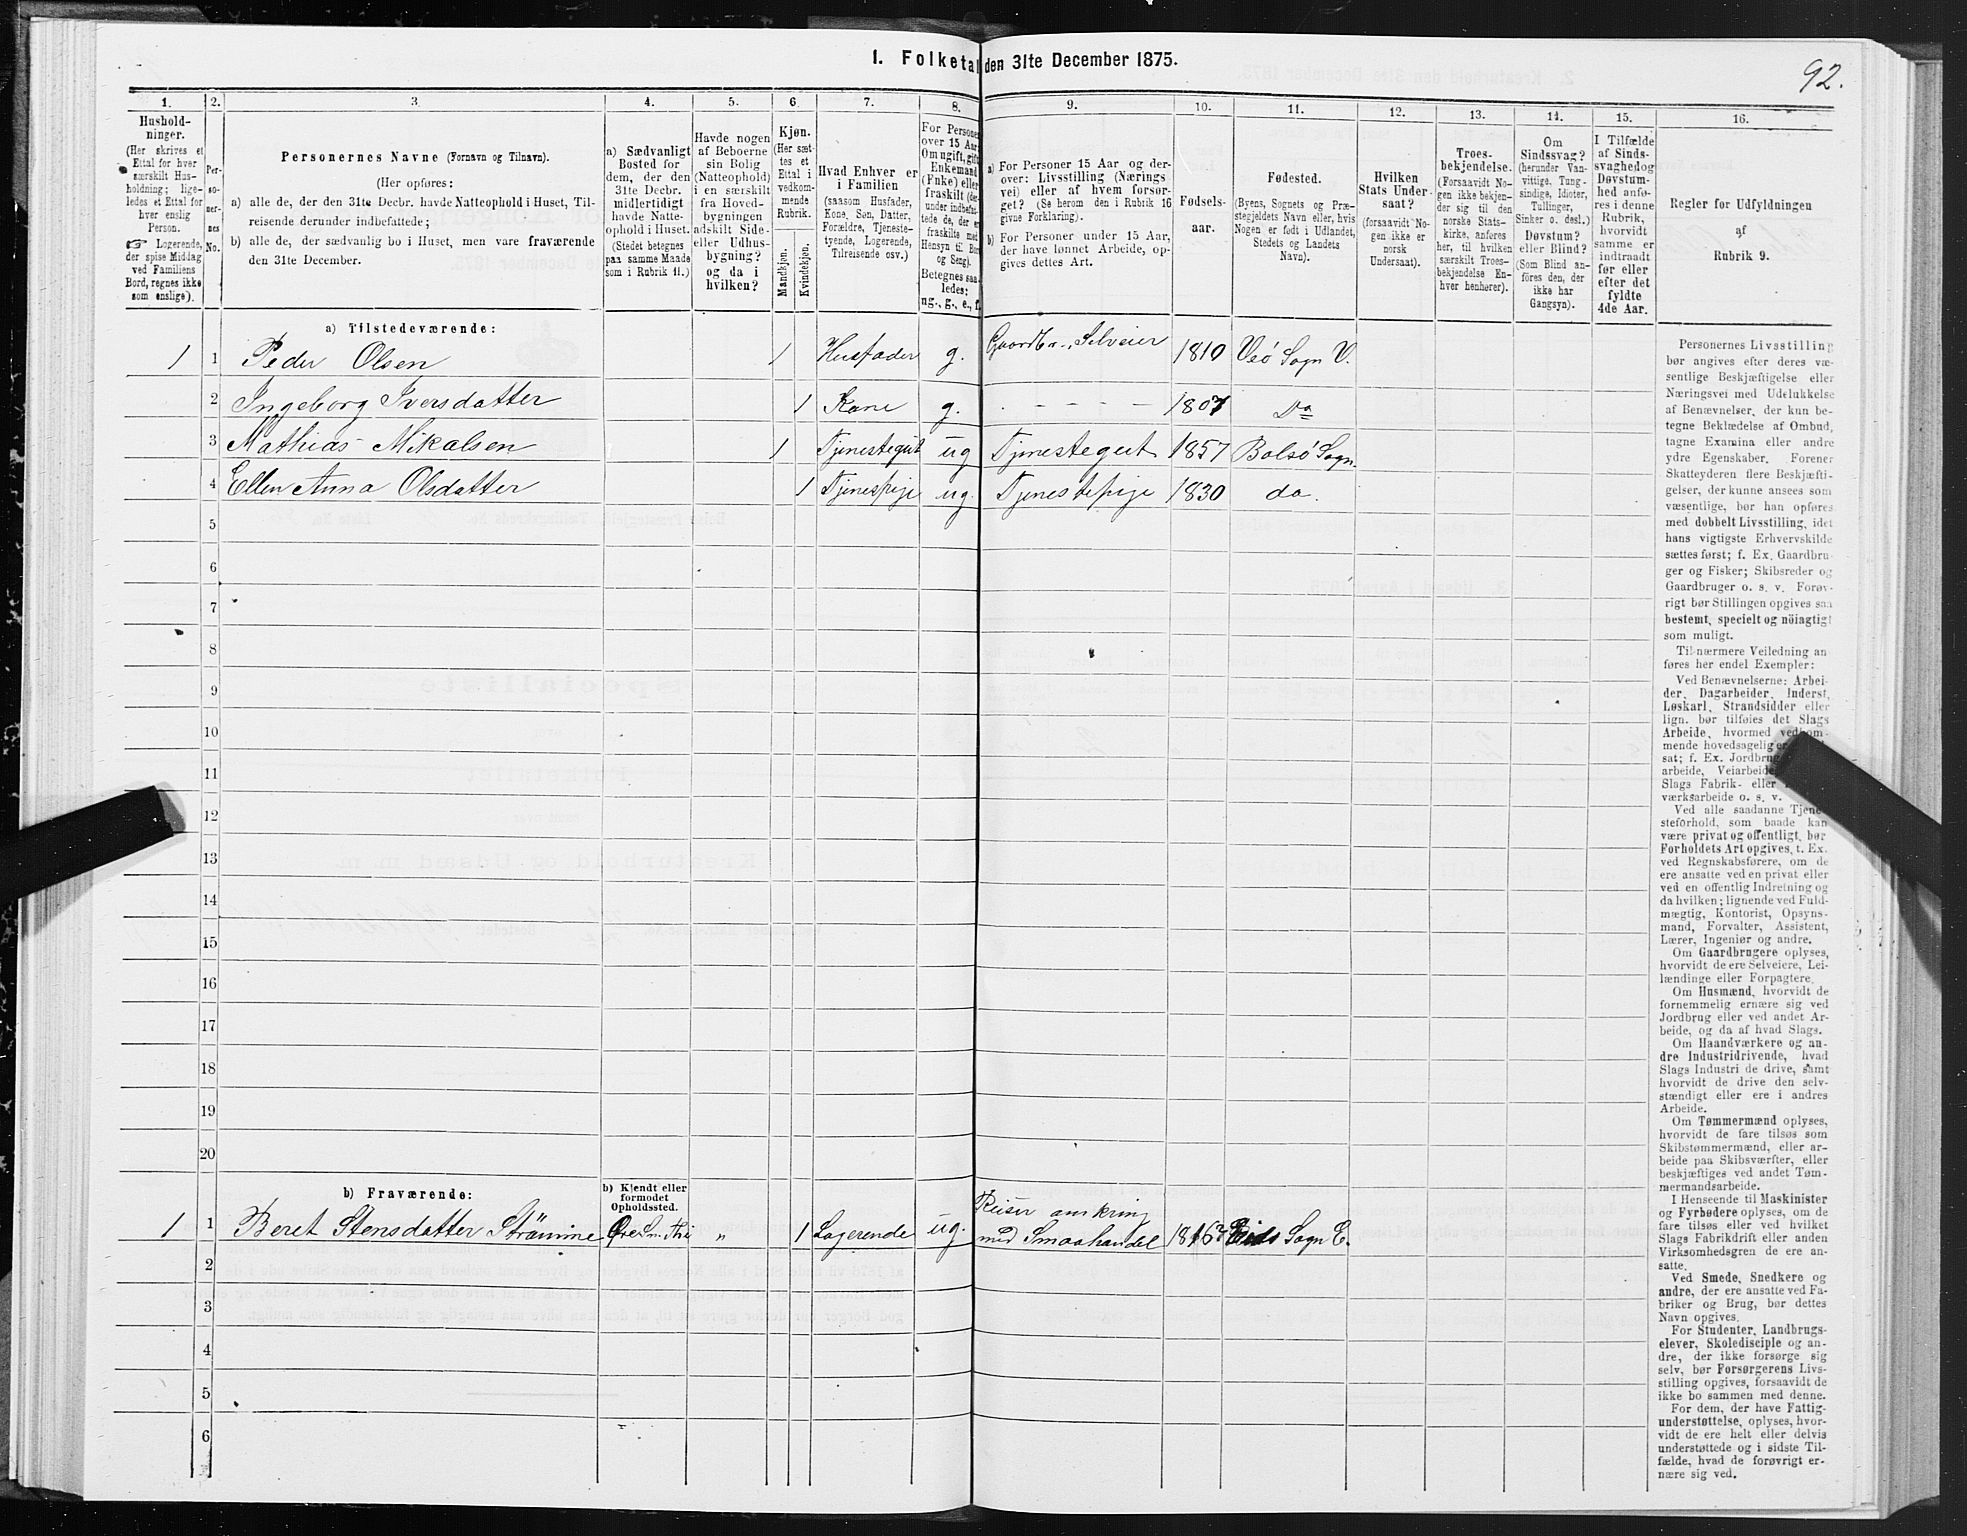 1. Folketal den 31te December 1875.
92.
1. 2. 3. 4. 5. 6. 7. 8. 9. 10. 11. 12. 13. 14. 15. 16.
Hushold-
ninger.
(Her skrives et
Ettal for hver
særskilt Hus-
holdning; lige-
ledes et Ettal for
hver enslig
Person.
☞ Logerende,
der spise Middag
ved Familiens
Bord, regnes ikke
som enslige).
Per-
so-
ner-
nes
No.
Personernes Navne (Fornavn og Tilnavn).
(Her opføres:
a) alle de, der den 31te Decbr. havde Natteophold i Huset, Til-
reisende derunder indbefattede;
b) alle de, der sædvanlig bo i Huset, men vare fraværende
den 31te December.
a) Sædvanligt
Bosted for
dem, der den
31te Decbr.
midlertidigt
havde Natte-
ophold i Huset.
(Stedet betegnes
paa samme Maade
som i Rubrik 11.)
Havde nogen
af Beboerne
sin Bolig
(Natteophold)
i en særskilt
fra Hoved-
bygningen
adskilt Side-
eller Udhus-
bygning?
og da i
hvilken?
Kjøn.
(Her sæt-
tes et
Ettal i
vedkom-
mende
Rubrik.
Mandkjøn.
Kvindekjøn.
Hvad Enhver er
i Familien
(saasom Husfader,
Kone, Søn, Datter,
Forældre, Tjeneste-
tyende, Logerende,
Tilreisende osv.)
For Persone
over 15 Aar
Om ugift, gift
Enkemand
(Enke) eller
fraskilt (der-
under indbefat-
tede de, der er
fraskilte med
Hensyn til Bor
og Seng).
Betegnes saa
ledes:
ug., g., e., f.
a) For Personer 15 Aar og der-
over: Livsstilling (Nærings
vei) eller af hvem forsør-
get? (Se herom den i Rubrik 16
givne Forklaring).
b) For Personer under 15 Aar,
der have lønnet Arbeide, op-
gives dettes Art.
Fødsels-
aar.
Fødested.
(Byens, Sognets og Præ-
stegjeldets Navn eller, hvis
Nogen er født i Udlandet,
Stedets og Landets
Navn).
Hvilken
Stats Under-
saat?
(forsaavidt No-
gen ikke er
norsk
Undersaat).
Troes-
bekjendelse.
(Forsaavidt No-
gen ikke bekjen-
der sig til den
norske Stats-
kirke, anføres
her, til hvilken
særskilt Troes-
bekjendelse En-
hver henhører).
Om
Sindssvag?
(herunder Van-
vittige, Tung-
sindige, Idioter,
Tullinger,
Sinker o. desl.)
Døvstum?
eller Blind?
(Som Blind an-
føres den, der
ikke har
Gangsyn).
I Tilfælde
af Sinds-
svaghed og
Døvstum-
hed anfø-
res i denne
Rubrik,
hvorvidt
samme er
indtraadt
før eller
efter det
fyldte
4de Aar.
Regler for Udfyldningen
af
Rubrik 9.
a) Tilstedeværende:
1 1 Peder Olsen 1 Husfader g. Gaardbr., Selveier 1810 Veö Sogn V.
2 Ingeborg Iversdatter 1 Kone g. - - - - - 1807 Do
3 Mathias Mikalsen 1 Tjenestegut ug Tjenestegut 1857 Bolsö Sogn
4 Ellen Anna Olsdatter 1 Tjenespige ug. Tjenestepige 1830 do.
5
6
7
8
9
10
11
12
13
14
15
16
17
18
19
20
b) Fraværende:
b) Kjendt eller
formodet
Opholdssted.
1 1 Beret Stensdatter Strömme „ 1 Logerende ug. Reiser omkring
med Smaahandel Eids Sogn E.
2
3
4
5
6
Personernes Livsstilling
bør angives efter deres væ-
sentlige Beskjæftigelse eller
Næringsvei med Udelukkelse
af Benævnelser, der kun be-
tegne Beklædelse af Ombud,
tagne Examina eller andre
ydre Egenskaber. Forener
Skatteyderen flere Beskjæfti-
gelser, der kunne ansees som
væsentlige, bør han opføres
med dobbelt Livsstilling, idet
hans vigtigste Erhvervskilde
sættes først; f. Ex. Gaardbru-
ger og Fisker; Skibsreder og
Gaardbruger o. s. v. Forøv-
rigt bør Stillingen opgives saa
bestemt, specielt og nöiagtigt
som muligt.
Til nærmere Veiledning an
føres her endel Exempler:
Ved Benævnelserne: Arbei-
der, Dagarbeider, Inderst,
Løskarl, Strandsidder eller
lign. bør tilføies det Slags
Arbeide, hvormed vedkom-
mende hovedsagelig er
sat; f. Ex. Jordbrug
arbeide, Veiarbeide,
Slags Fabrik- eller
værksarbeide o. s. v.
Ved alle saadanne Tjene-
steforhold, som baade kan
være privat og offentligt, bør
Forholdets Art opgives, t. Ex.
ved Regnskabsførere, om de
ere ansatte ved en privat eller
ved en offentlig Indretning og
da hvilken; lignende ved Fuld-
mægtig, Kontorist, Opsyns-
mand, Forvalter, Assistent,
Lærer, Ingeniør og andre.
Om Gaardbrugere oplyses,
hvorvidt de ere Selveiere, Lei-
lændinge eller Forpagtere.
Om Husmænd, hvorvidt de
fornemmelig ernære sig ved
Jordbrug eller ved andet Ar-
beide, og da af hvad Slags.
Om Haandværkere og an-
dre Industridrivende, hvad
Slags Industri de drive, samt
hvorvidt de drive den selv-
stændigt eller ere i andres
Arbeide.
Om Tømmermænd oplyses,
hvorvidt de fare tilsøs som
Skibstømmermænd, eller ar-
beide paa Skibsværfter, eller
beskjæftiges ved andet Tøm-
mermandsarbeide.
I Henseende til Maskinister
og Fyrbødere oplyses, om de
fare tilsøs eller ved hvilket
Slags Fabrikdrift eller anden
Virksomhedsgren de ere an-
satte.
Ved Smede, Snedkere og
andre, der ere ansatte ved Fa-
briker og Brug, bør dettes
Navn opgives.
For Studenter, Landbrugs-
elever, Skoledisciple og an-
dre, der ikke forsørge sig
selv, bør Forsørgerens Livs-
stilling opgives, forsaavidt de
ikke bo sammen med denne.
For dem, der have Fattig-
understøttelse, oplyses, hvor-
vidt de ere helt eller delvis
understøttede og i sidste Til-
fælde, hvad de forøvrigt er-
nære sig ved.